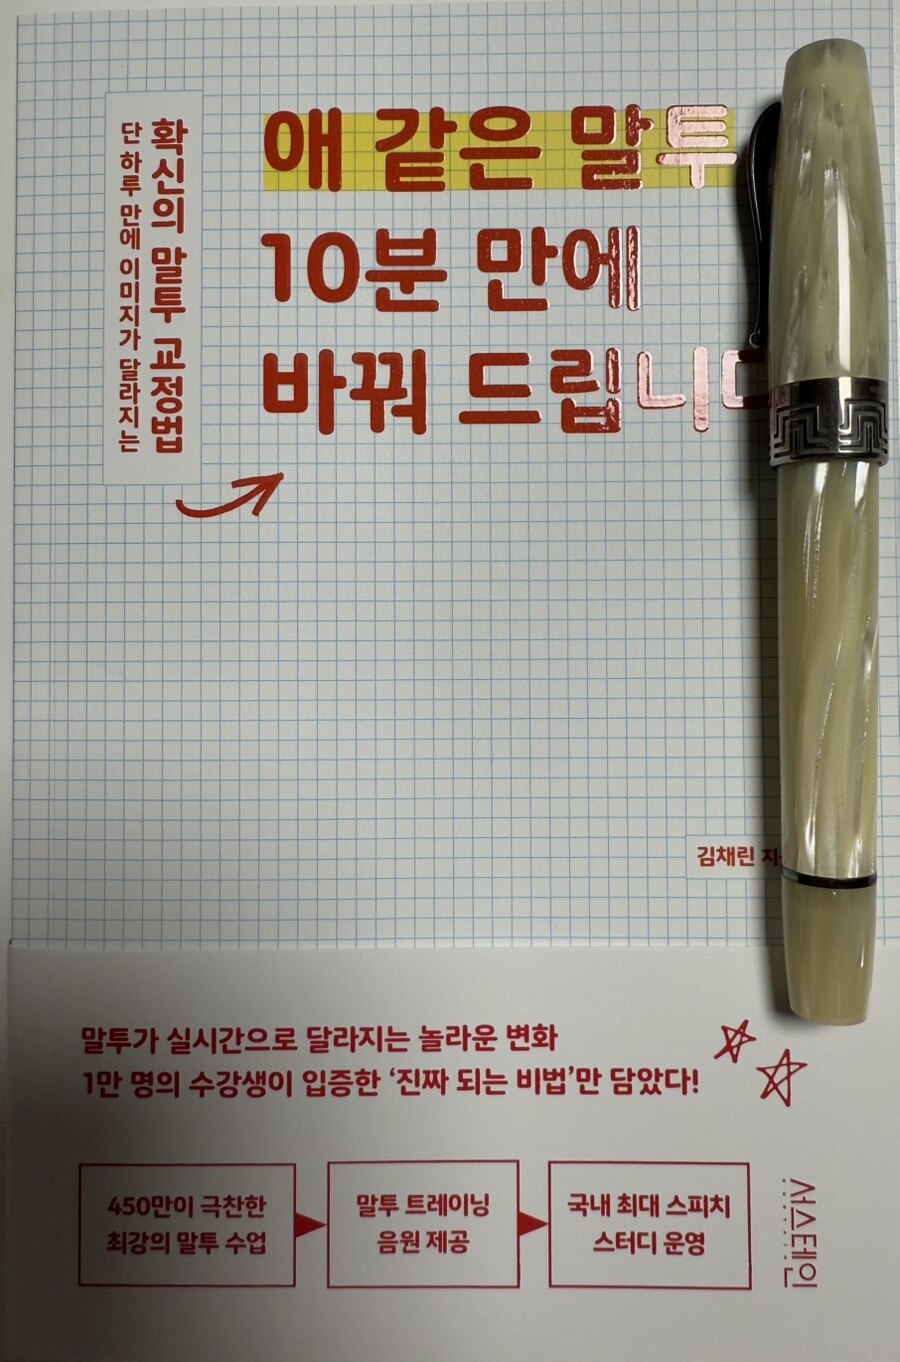 확신의 말투 교정법
단 하루 만에 이미지가 달라지는
애 같은 말투
10분 만에
바꿔 드립니다
김채린
말투가 실시간으로 달라지는 놀라운 변화
1만 명의 수강생이 입증한 ‘진짜 되는 비법’만 담았다!
450만이 극찬한
최강의 말투 수업
말투 트레이닝
음원 제공
국내 최대 스피치
스터디 운영
서스테인